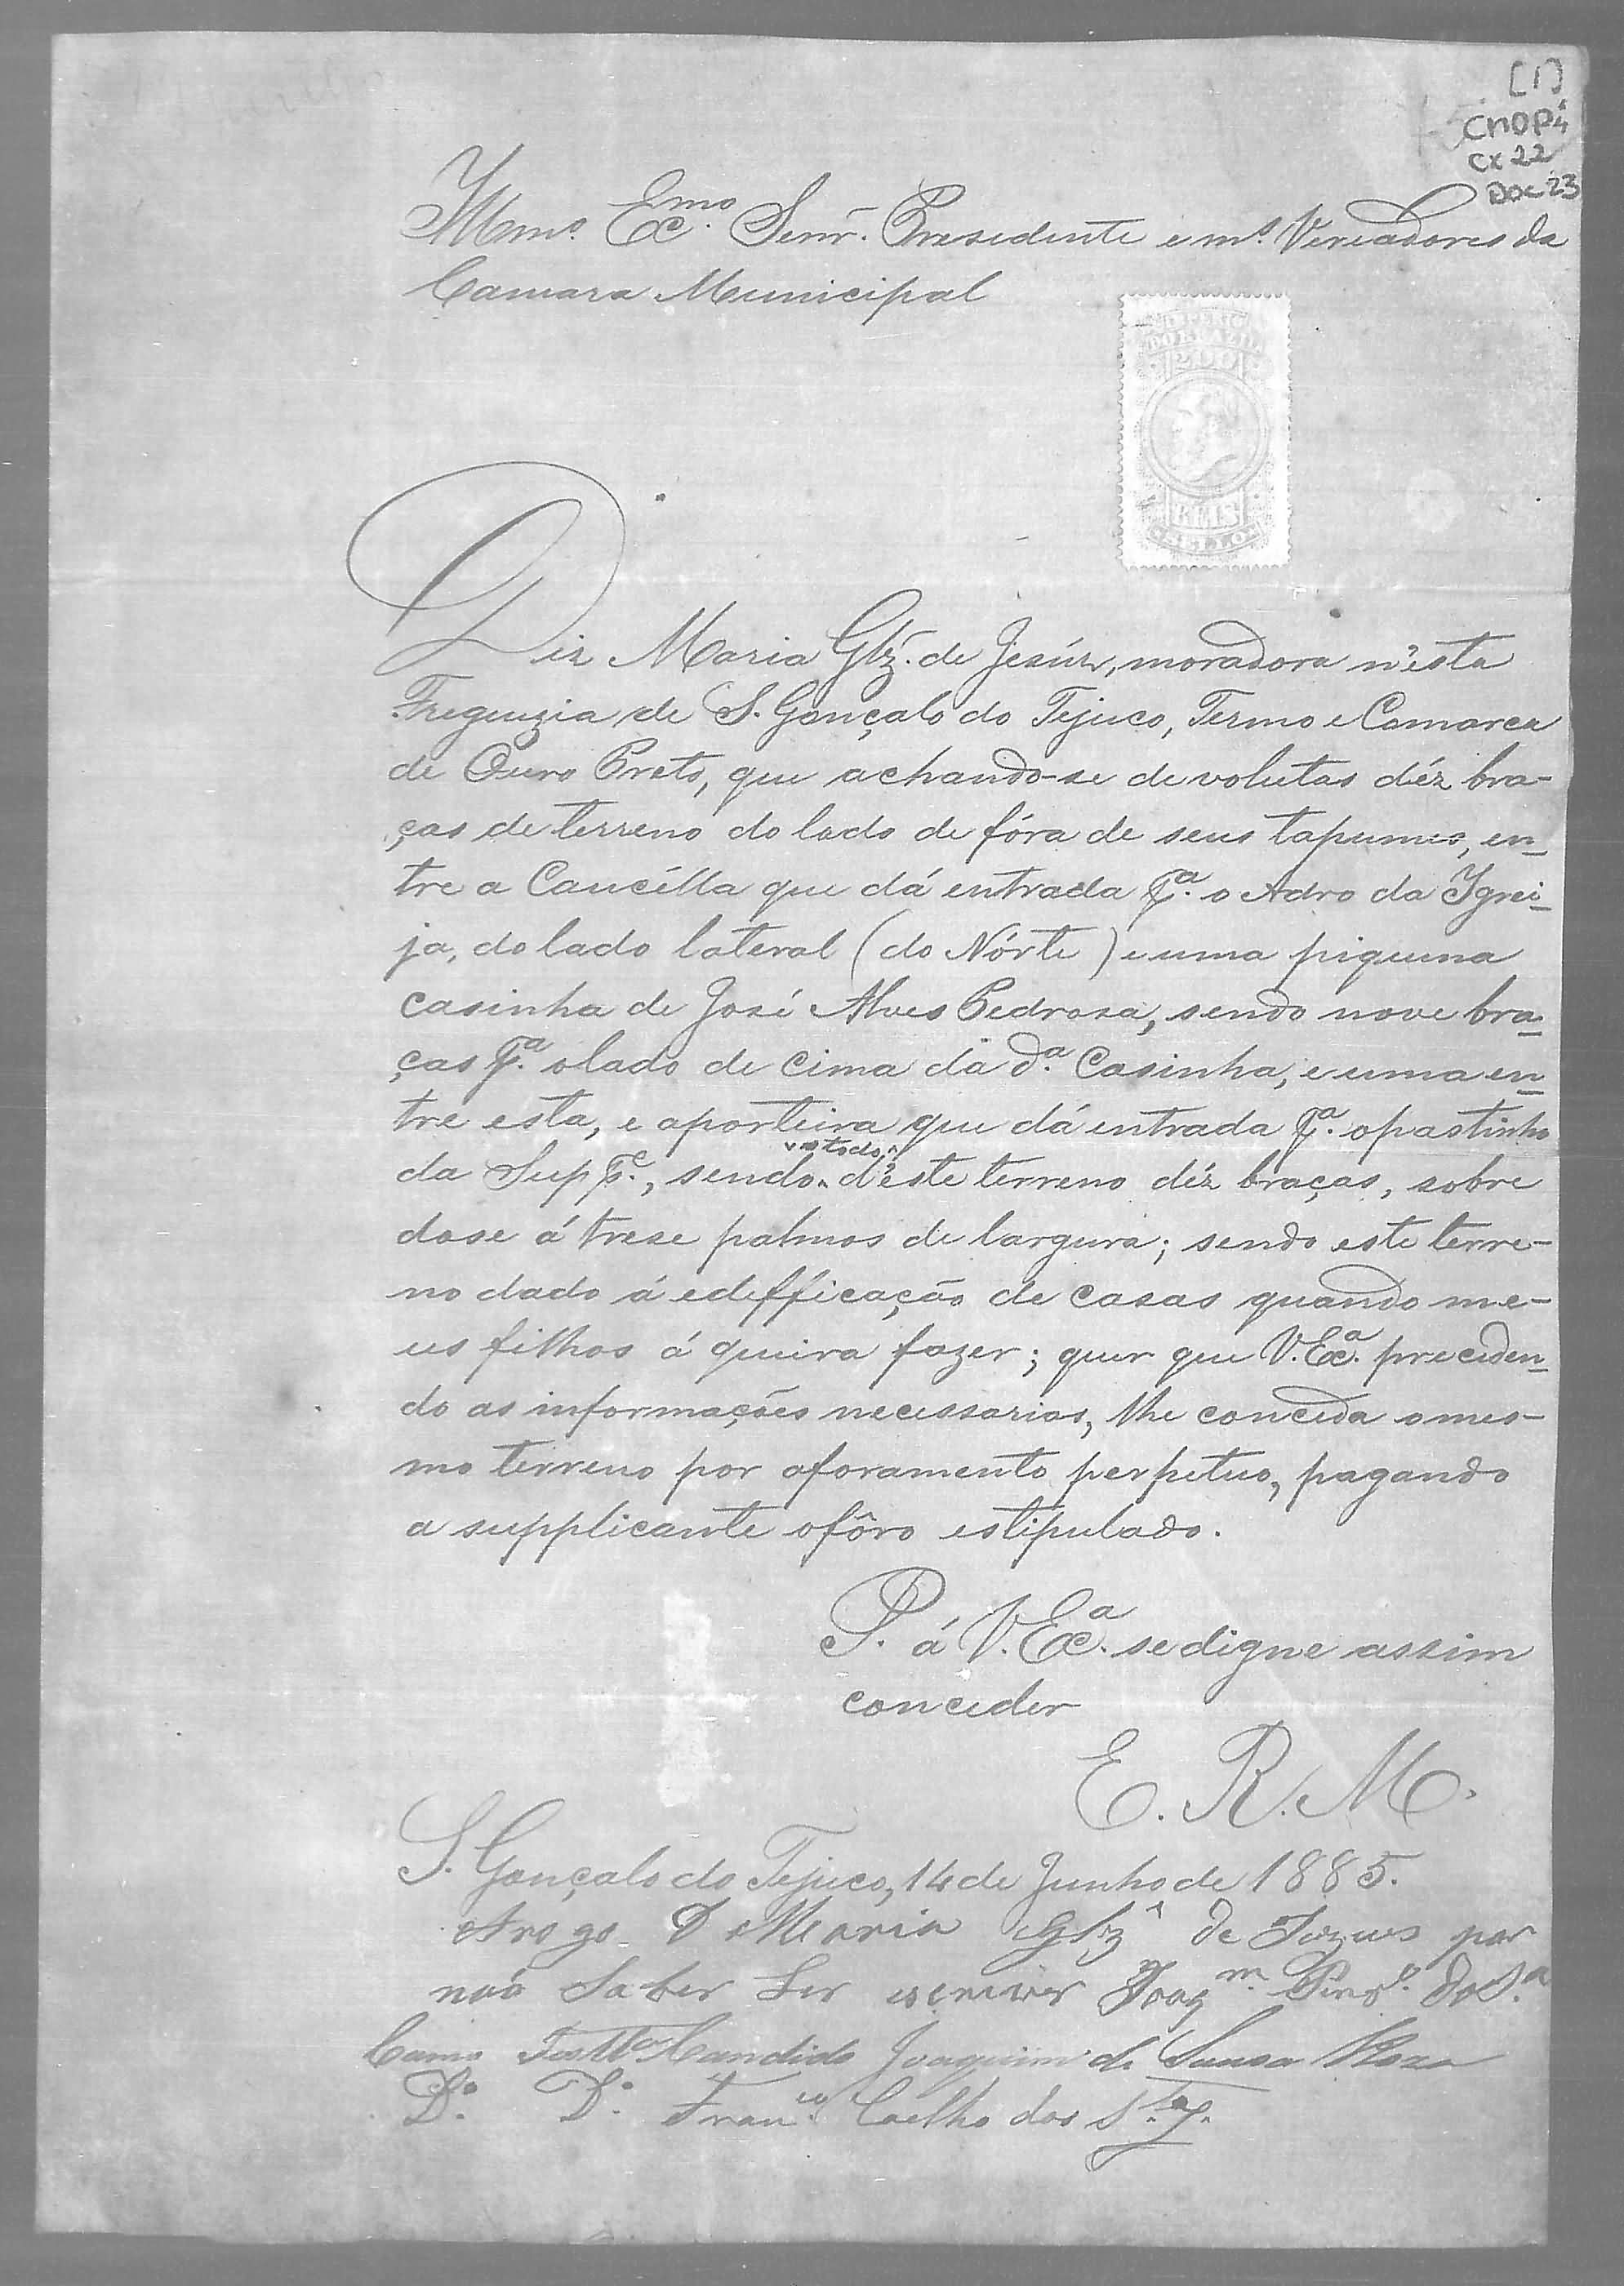 [1]
CMOP
Cx 22
Doc 23
Illmo. Ecmo. Senr. Presidente e ms. Vereadores da
Camara Municipal
IMPERIO
DO BRAZIL
200
REIS
SELLO
Diz Maria Glz. de Jesús, moradora n'esta
Freguezia de S. Gonçalo do Tejuco, Termo e Comarca
de Ouro Preto, que achando-se devolutas déz bra-
ças de terreno do lado de fóra de seus tapumes, en-
tre a Caucélla que dá entrada pa. o Adro da Igrei-
ja, do lado lateral (do Nórte) e uma piquena
casinha de José Alves Pedrosa, sendo nove bra-
ças pa. o lado de cima da da. Casinha, e uma en-
tre esta, e a porteira que dá entrada pa. o pastinho
da Suppe., sendo todo d'este terreno déz braças, sobre
dose á trese palmos de largura; sendo este terre-
no dado á edifficação de casas quando me-
us filhos á queira fazer; quer que V. Eca. preceden-
do as informações necessarias, lhe conceda o mes-
mo terreno por aforamento perpetuo, pagando
a supplicante o fôro estipulado.
P. á V. Eca. se digne assim
conceder
E. R. M.
S. Gonçalo do Tejuco, 14 de Junho de 1885.
Arogo D Maria Glz de Jezus por
não Saber Ler escriver Joaqm. da Sa.
Como Testa. Candido Joaquim de Sousa
Do. Do. Franco. Coelho dos Stos.